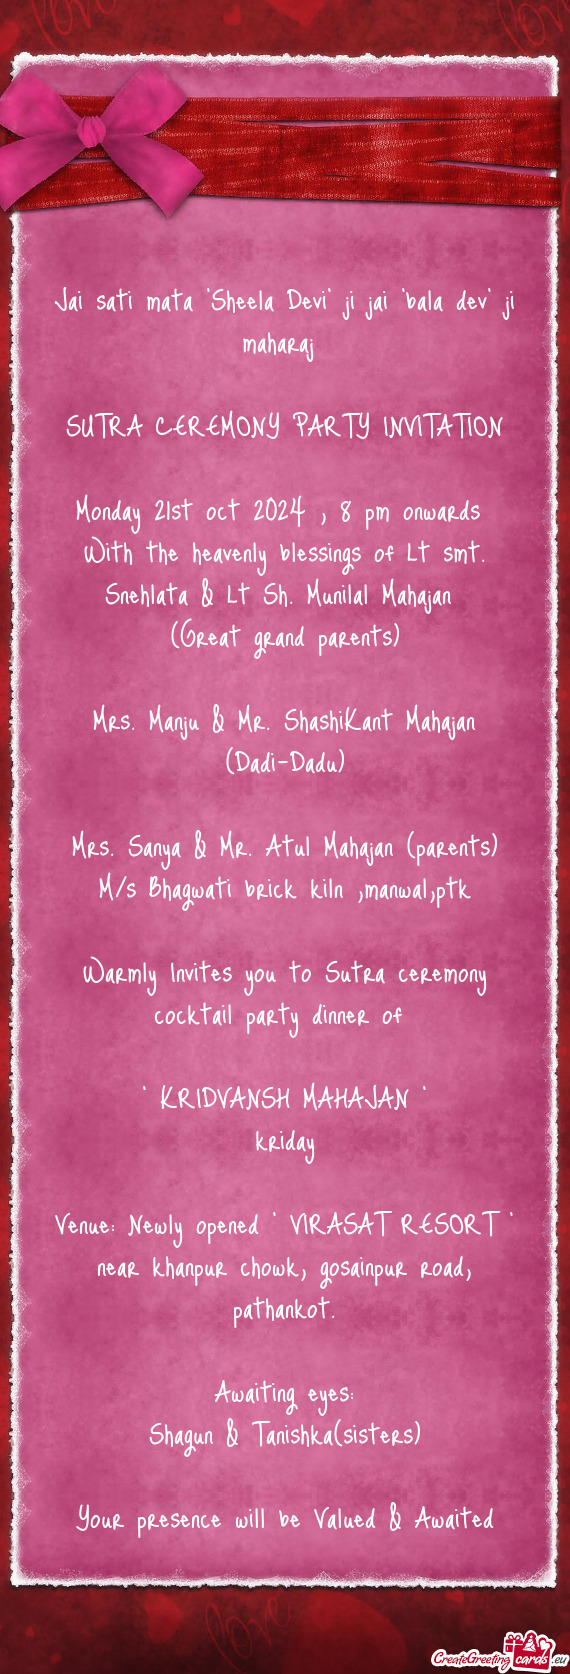 love
Jai sati mata "Sheela Devi" ji jai "bala dev" ji
maharaj
SUTRA CEREMONY PARTY INVITATION
Monday 21st oct 2024 , 8 pm onwards
With the heavenly blessings of Lt smt.
Snehlata & Lt Sh. Munilal Mahajan
(Great grand parents)
Mrs. Manju & Mr. ShashiKant Mahajan
(Dadi-Dadu)
Mrs. Sanya & Mr. Atul Mahajan (parents)
M/s Bhagwati brick kiln ,manwal,ptk
Warmly Invites you to Sutra ceremony
cocktail party dinner of
" KRIDVANSH MAHAJAN "
kriday
Venue: Newly opened " VIRASAT RESORT "
near khanpur chowk, gosainpur road,
pathankot.
Awaiting eyes:
Shagun & Tanishka(sisters)
Your presence will be Valued & Awaited
love
CreateGreetingcards.eu